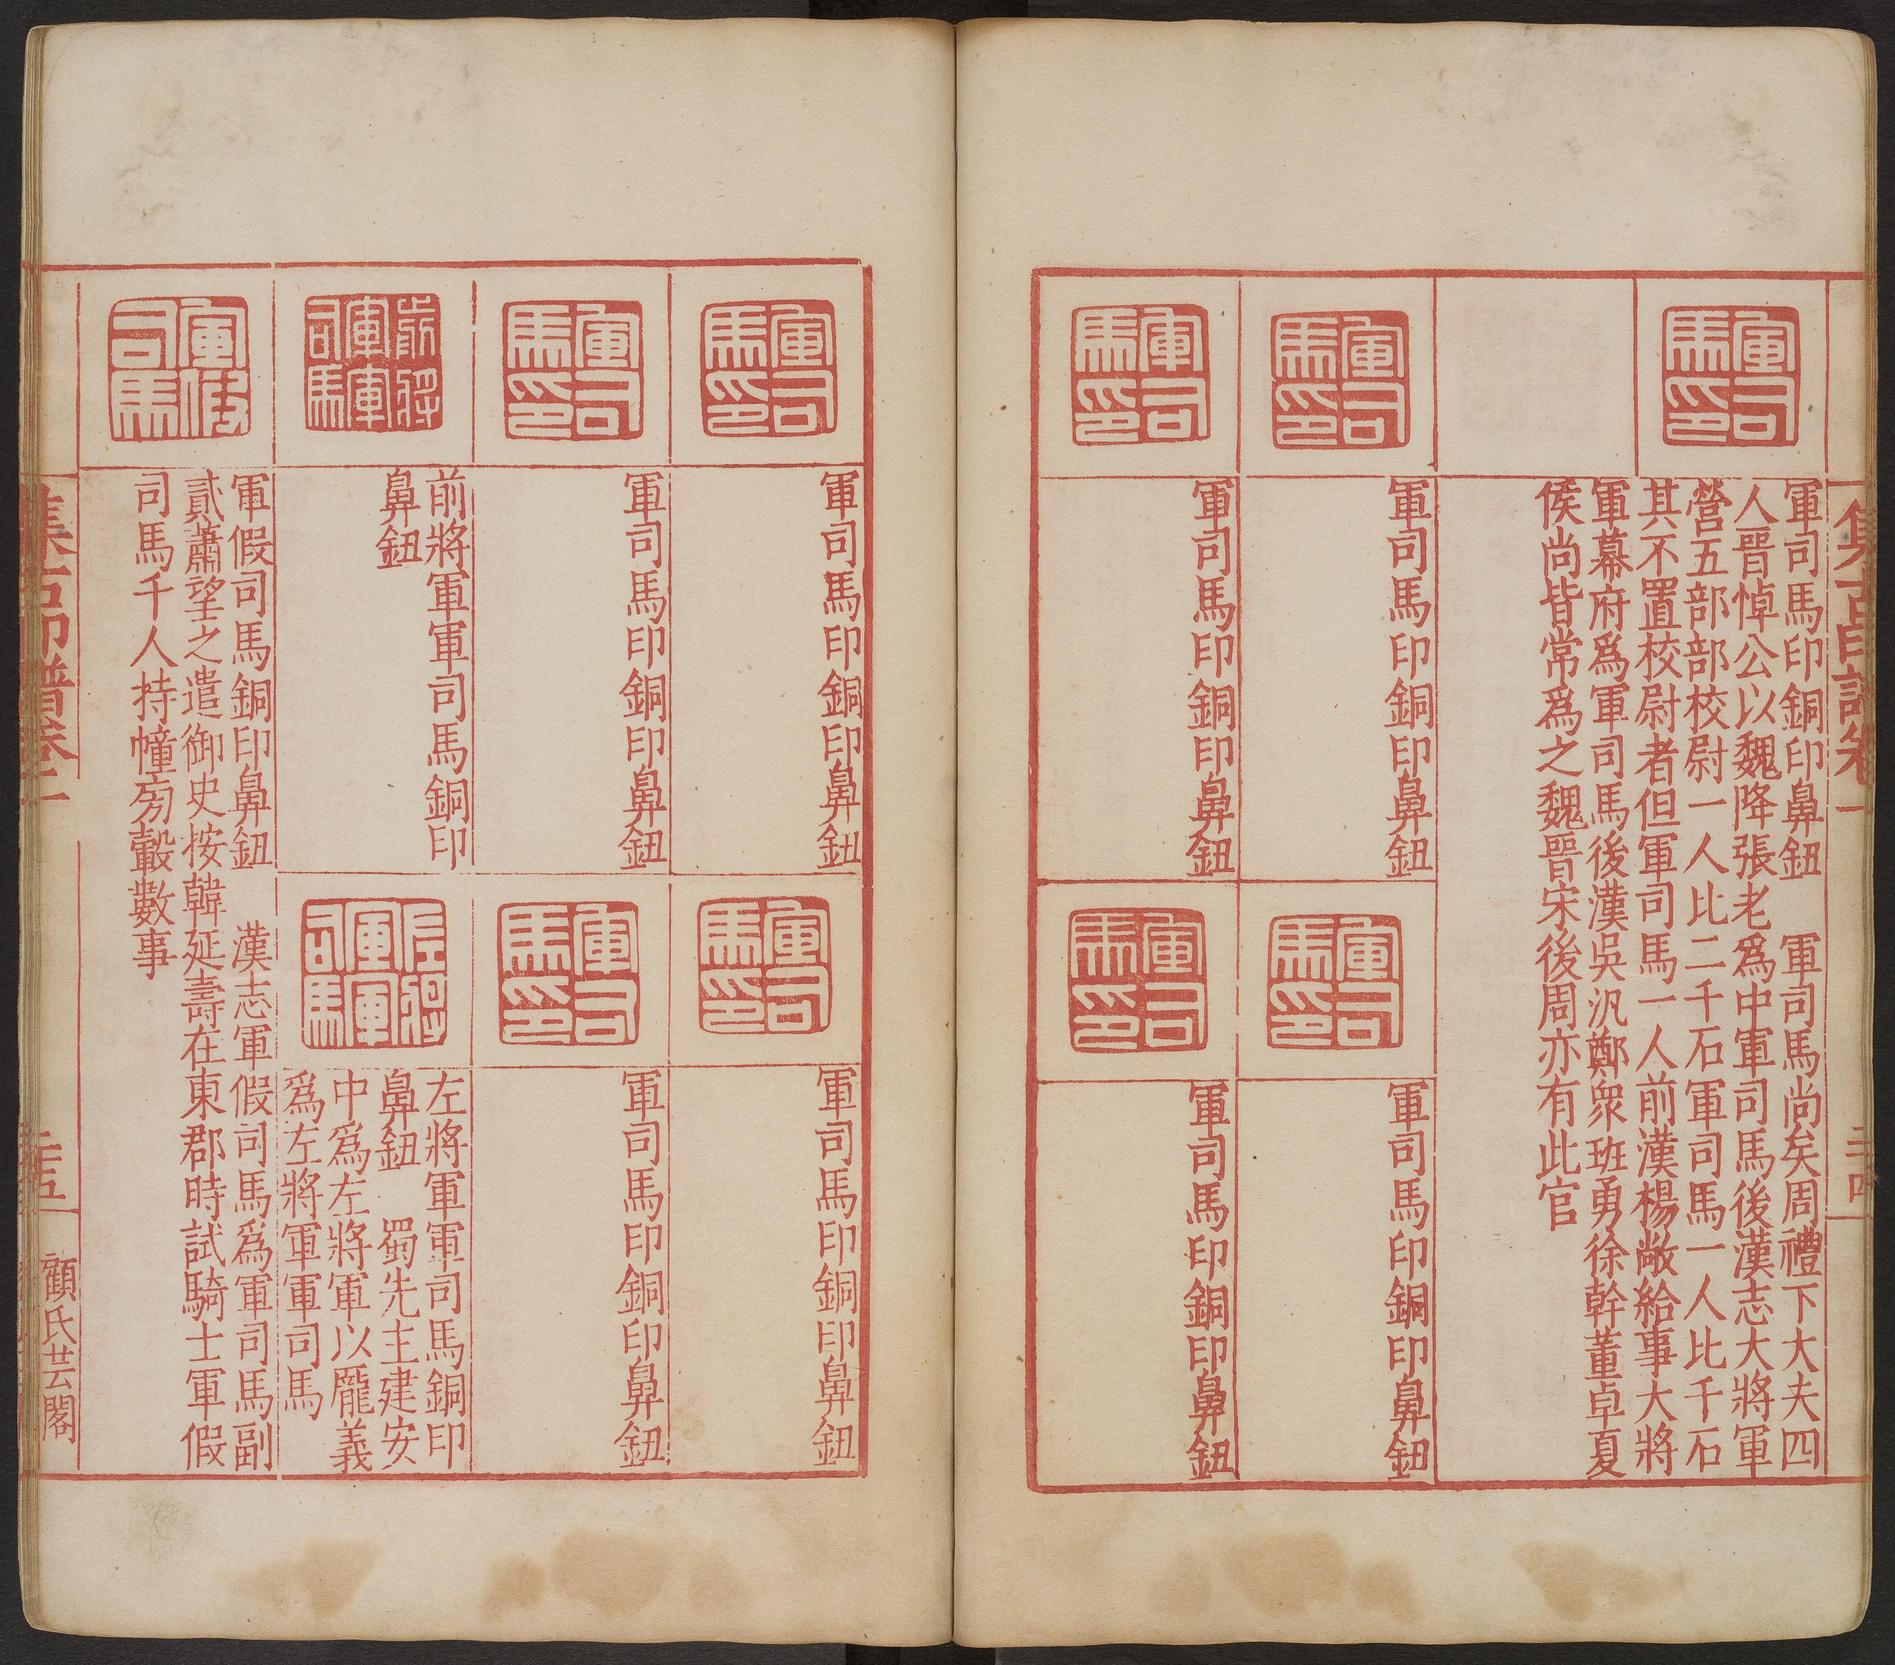 集古印譜卷二
二十四
軍司馬印
軍司馬印銅印鼻鈕　軍司馬尚矣周禮下大夫四
人晉悼公以魏降張老爲中軍司馬後漢志大將軍
營五部部校尉一人比二千石軍司馬一人比千石
其不置校尉者但軍司馬一人前漢楊敞給事大將
軍幕府爲軍司馬後漢吳汎鄭衆班勇徐幹董卓夏
侯尚皆常爲之魏晉宋後周亦有此官
軍司馬印
軍司馬印銅印鼻鈕
軍司馬印
軍司馬印銅印鼻鈕
軍司馬印
軍司馬印銅印鼻鈕
軍司馬印
軍司馬印銅印鼻鈕
軍司馬印
軍司馬印銅印鼻鈕
軍司馬印
軍司馬印銅印鼻鈕
軍司馬印
軍司馬印銅印鼻鈕
軍司馬印
軍司馬印銅印鼻鈕
前將軍軍司馬
前將軍軍司馬銅印
鼻鈕
左將軍軍司馬
左將軍軍司馬銅印
鼻鈕　蜀先主建安
中爲左將軍以龐義
爲左將軍軍司馬
軍假司馬
軍假司馬銅印鼻鈕　漢志軍假司馬爲軍司馬副
貳蕭望之遣御史按韓延壽在東郡時試騎士軍假
司馬千人持幢旁轂數事
集古印譜卷二
二十五
顧氏芸閣